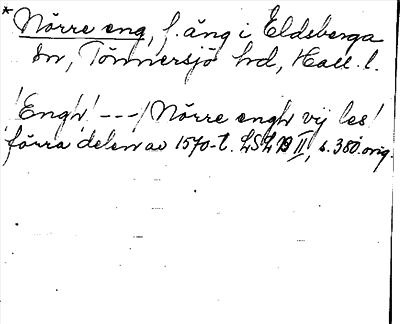 * Nörre eng, f. äng i Eldsberga
sn, Tönnersjö hd, Hall. l.
'Engh' --- / Nörre engh vij les'
förra delen av 1570-t. LSLB II, s. 380. orig.